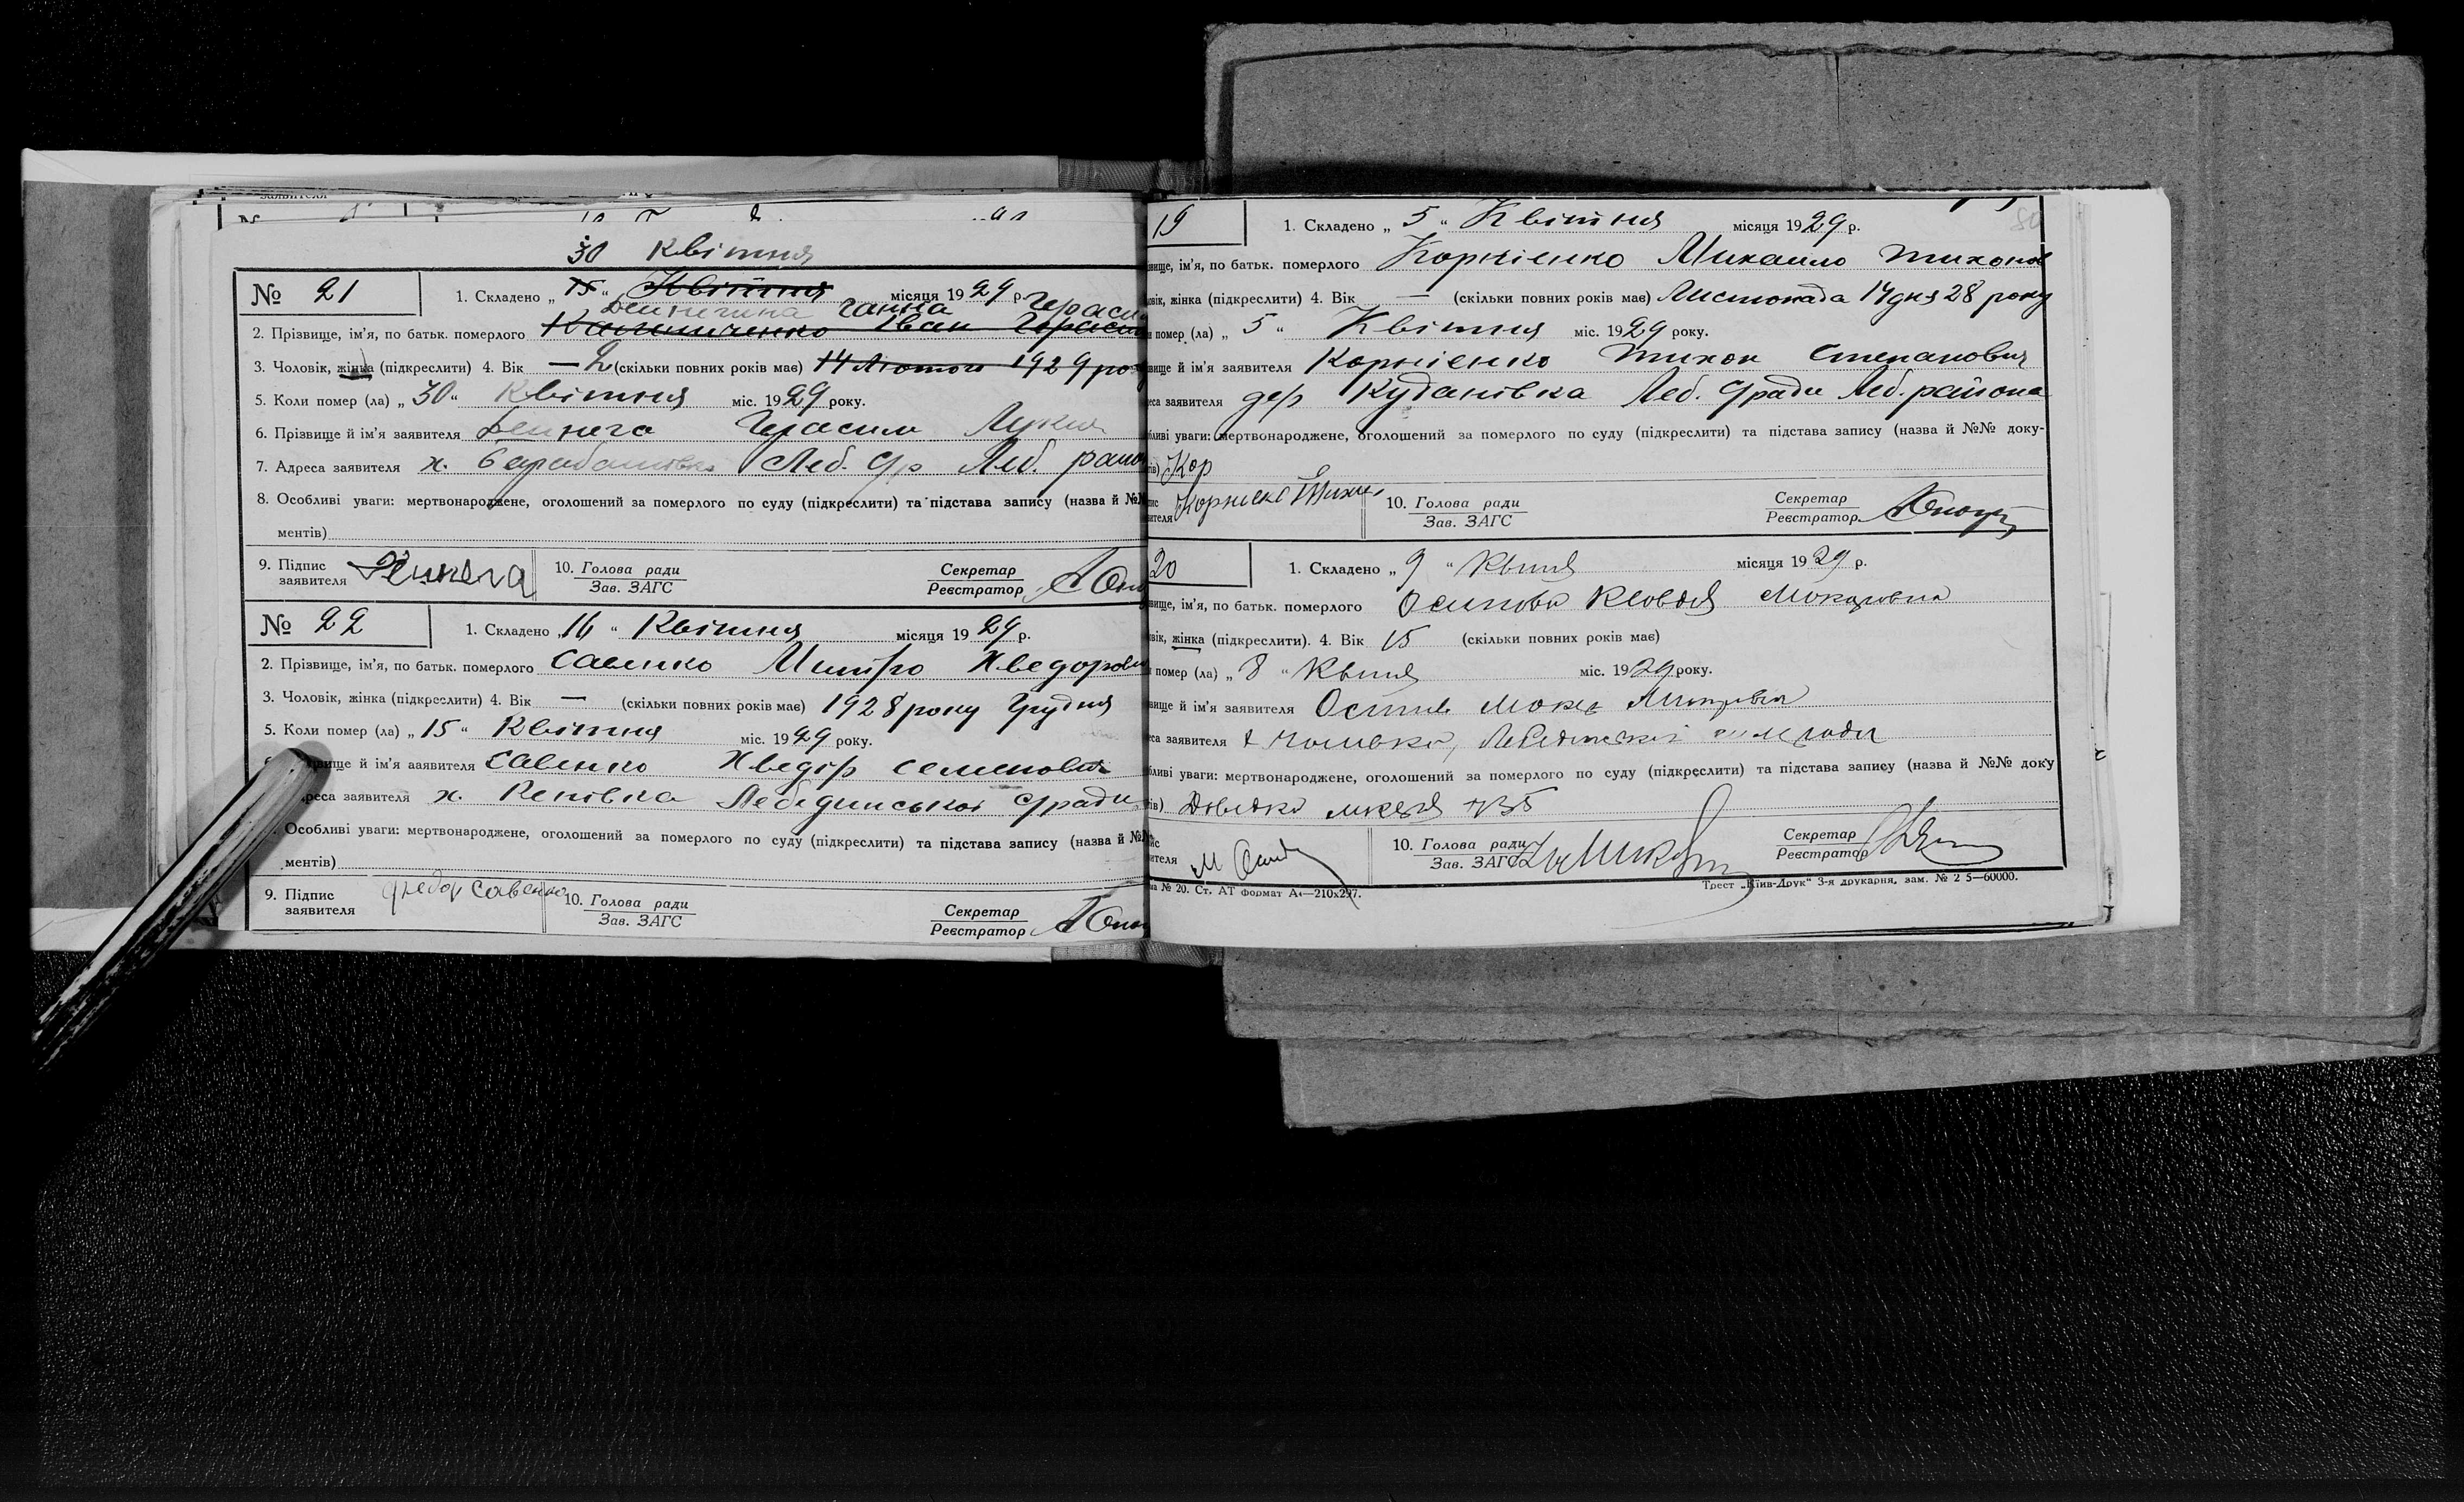 заявителя
30 Квітня
№ 21
1. Складено „ 15 “ Квітня місяця 1929 р.
Денчегина Ганна Герасим
2. Прізвище, ім'я, по батьк. померлого Іван Герасим
3. Чоловік, жінка (підкреслити) 4. Вік — 2 (скільки повних років має) 14 Лютого 1929 ро
5. Коли помер (ла) „ 30 “ Квітня міс. 1929 року.
6. Прізвище й ім'я заявителя Герасим Лукич
7. Адреса заявителя х. Барабашівка Леб. С/р Леб. райо
8. Особливі уваги: мертвонароджене, оголошений за померлого по суду (підкреслити) та підстава запису (назва й №№
ментів)
9. Підпис заявителя
10. Голова ради
Зав. ЗАГС
Секретар
Реєстратор
№ 22
1. Складено „ 16 “ Квітня місяця 1929 р.
2. Прізвище, ім'я, по батьк. померлого Савенко Митро Хведорови
3. Чоловік, жінка (підкреслити) 4. Вік — (скільки повних років має) 1928 року Грудня
5. Коли помер (ла) „ 15 “ Квітня міс. 1929 року.
вище й ім'я заявителя Савенко Хведір Семенович
реса заявителя х. Кепівка Лебединської с/ради
Особливі уваги: мертвонароджене, оголошений за померлого по суду (підкреслити) та підстава запису (назва й №№
ментів)
9. Підпис заявителя Федор Савенко
10. Голова ради
Зав. ЗАГС
Секретар
Реєстратор
19
1. Складено „ 5 “ Квітня місяця 1929 р.
вище, ім'я, по батьк. померлого Корнієнко Михайло Тихонов
овік, жінка (підкреслити) 4. Вік — (скільки повних років має) Листопада 14 дня 28 року
помер (ла) „ 5 “ Квітня міс. 1929 року.
вище й ім'я заявителя Корнієнко Тихон Степанович
еса заявителя дер Кудановка Леб. С/ради Леб. района
бливі уваги: мертвонароджене, оголошений за померлого по суду (підкреслити) та підстава запису (назва й №№ доку-
ів) Кор
пис
вителя
10. Голова ради
Зав. ЗАГС
Секретар
Реєстратор
20
1. Складено „ 9 “ Квітня місяця 1929 р.
вище, ім'я, по батьк. померлого Осипова Клавдія Мокіровна
овік, жінка (підкреслити). 4. Вік 15 (скільки повних років має)
помер (ла) „ 8 “ Квітня міс. 1929 року.
вище й ім'я заявителя Осипов
еса заявителя
бливі уваги: мертвонароджене, оголошений за померлого по суду (підкреслити) та підстава запису (назва й №№ доку
ів) Довідка лікаря №35
ис
вителя
10. Голова ради
Зав. ЗАГС
Секретар
Реєстратор
ма № 20. Ст. АТ формат А4—210х297.
Трест „Київ-Друк“ 3-я друкарня, зам. № 2 5—60000.